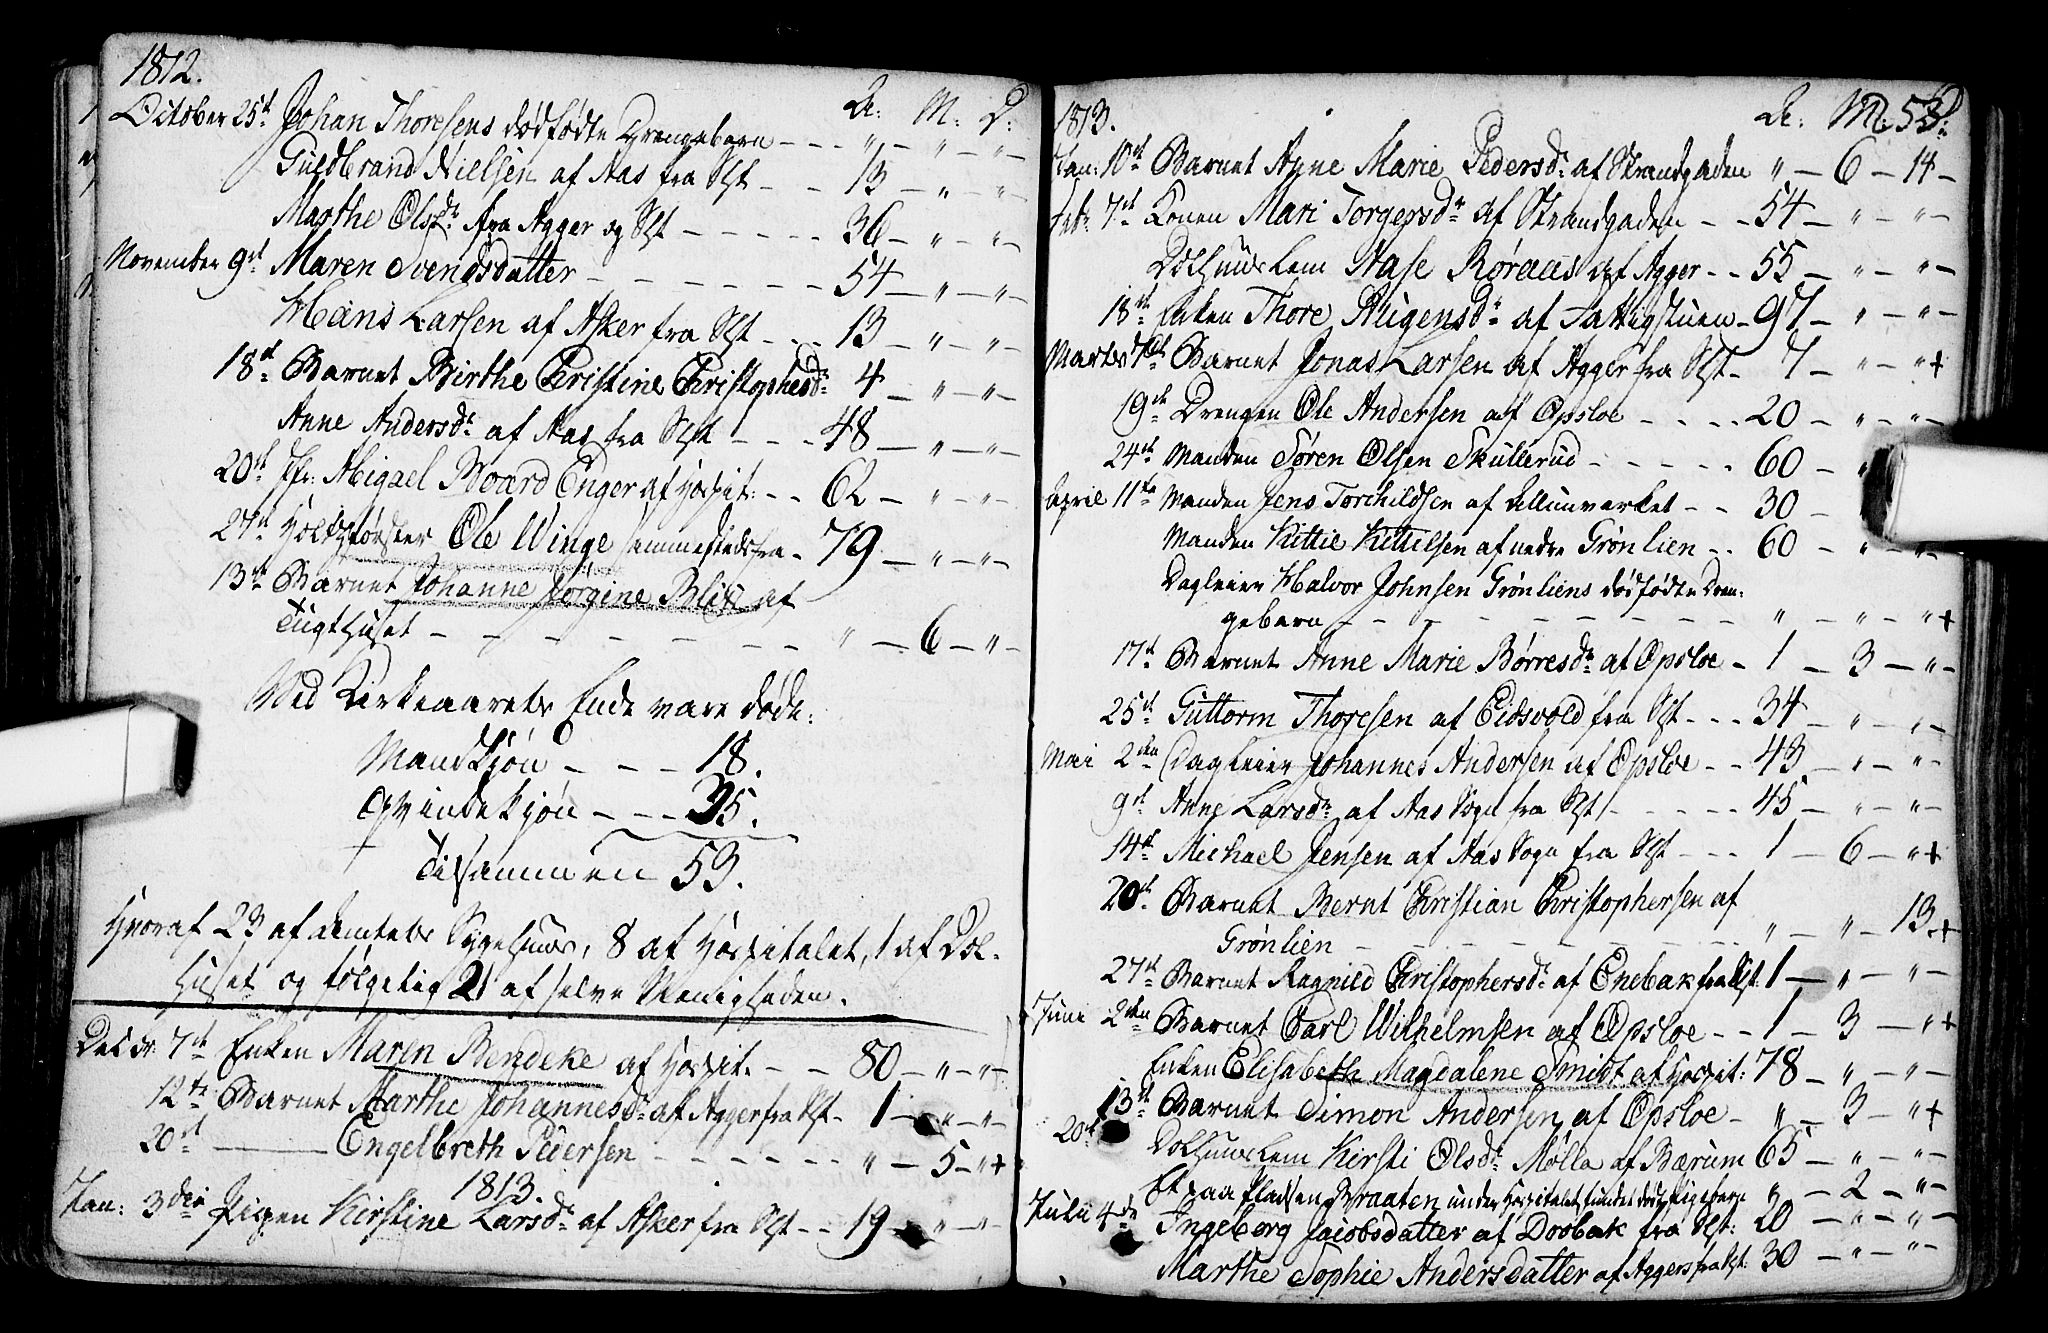 1812.
A: M: D:
October 25de Johan Thoresens dødfødte Drengebarn - - - " - " - " -
Guldbrand Nielsen af Aas fra Slst - - 13 - " - " -
Marthe Olsdr. fra Agger og Slst - - - - - 36 - " - " -
November 9de Maren Svendsdatter - - - - - - - 54 - " - " -
Hans Larsen af Asker fra Slst - - - 13 - " - " -
18de Barnet Birthe Christine Christophersdr. 4 - " - " -
Anne Andersdr. af Aas fra Slst - - - 48 - " - " -
20de Jfr: Abigael Enger af Hospit: - - 62 - " - " -
27de Ole Winge sammestedsfra - 79 - " - " -
13de Barnet Johanne Jørgine Blix af
Tugthuset - - - - - - - " - 6 - " -
Ved Kirkeaarets Ende vare døde:
Mandkjøn - - - 18.
Qvindekjøn - - - 35.
Tilsammen 53.
Hvoraf 23 af Amtets Sygehuus, 8 af Hospitalet, 1 af Dol-
huset og følgelig 21 af selve Menigheden.
Decbr: 7de Enken Maren Bendeke af Hospit. - - 80 - " - " -
12te Barnet Marthe Johannesdr. af Agger fra Slst - 1 - " - " -
20de ——— Engelbreth Pedersen - - - - - - " - 5 - " +
1813.
Jan: 3die Pigen Kirstine Larsdr. af Asker fra Slst - - 19 - " - " -
53.
1813. A: M: D:
Jan: 10de Barnet Anne Marie Pedersdr. af Strandgaden " - 6 - 14 -
Feb: 7de Konen Mari Torgersdr. af Strandgaden - - 54 - " - " -
Dolhuus Lem Aase Røraas af Agger - - 55 - " - " -
18de Enken Thore Augensdr. af Fattigstuen - 97 - " - " -
Marts 7de Barnet Jonas Larsen af Agger fra Slst - 7 - " - " +
19de Drengen Ole Andersen af Opsloe - - - - 20 - " - " -
24de Manden Søren Olsen Skullerud - - - - - 60 -
April 11te Manden Jens Torchildsen af Allunverket - - 30 -
Manden Kittie Kittilsen af nedre Grønlien - - 60 - " - " -
Dagleier Halvor Johnsen Grønliens dødfødte Dren-
gebarn - - - - - - - - - " - " - " +
17de Barnet Anne Marie Børresdr. af Opsloe - 1 - 3 - " -
25de Guttorm Thoresen af Eidsvold fra Slst - - - 34 - " - " -
Mai 2den Dagleier Johannes Andersen af Opsloe - - 43 - " - " -
9de Anne Larsdr. af Aas Sogn fra Slst - - - - - 45 - " - " -
14de Michael Jensen af Aas Sogn fra Slst - - - 1 - 6 - " +
20de Barnet Bernt Christian Christophersen af
Grønlien - - - - - - - - - " - " - 13 - +
27de Barnet Ragnild Christophersdr. af Enebak fra Slst: 1 - " - " -
Juni 2den Barnet Carl Wilhelmsen af Opsloe - - 1 - 3 - " +
Enken Elisabeth Magdalene Smidt af Hospit: 78 - " - " -
13de Barnet Simon Andersen af Opsloe - " - 3 - " +
20de Dolhuus Lem Kirsti Olsdr. Mølla af Bærum 65 - " - " -
Et paa Pladsen Braaten under Hospitalet fundet dødt Pigebarn " - 2 - " -
Juli 4de Ingeborg Jacobsdatter af Drøbak fra Slst: 20 - " - " -
Marthe Sophie Andersdatter af Aggers fra Slst: 30 - " - " -